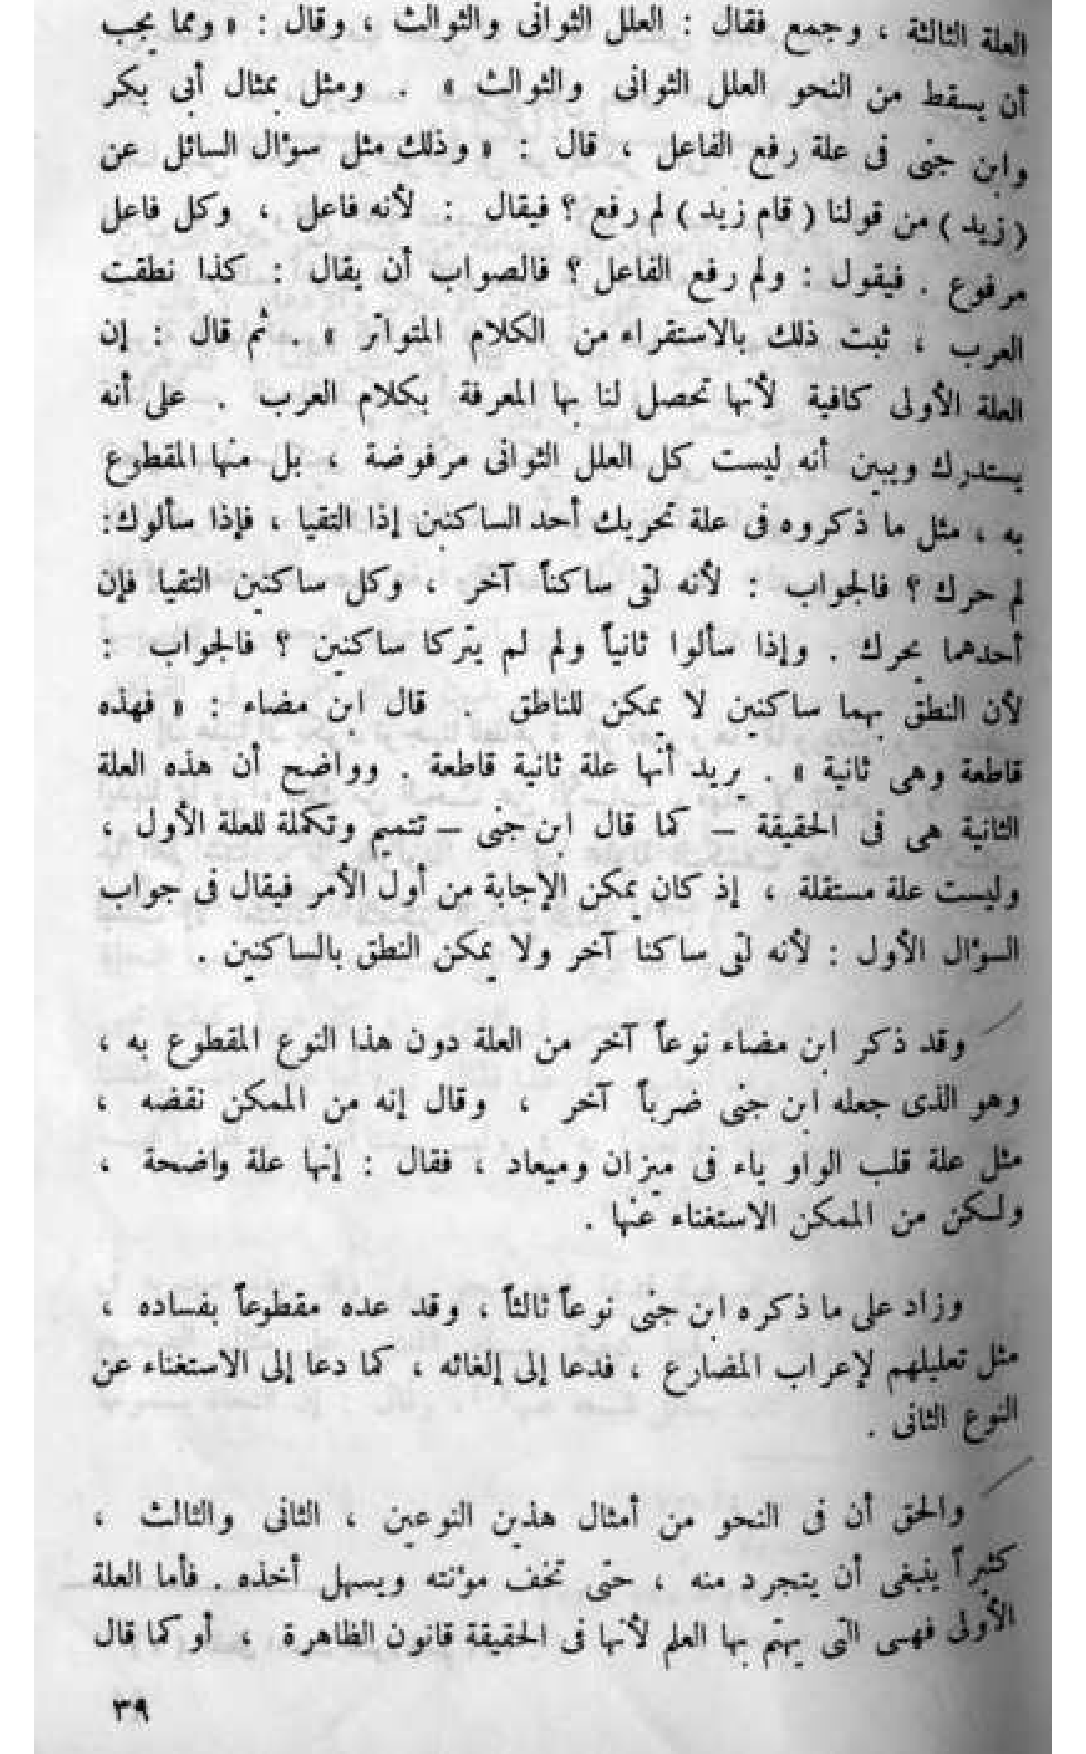 العلة الثالثة ، وجمع فقال : العلل الثوانى والثوالث ، وقال : « ومما يجب
أن يسقط من النحو العلل الثوانى والثوالث » . ومثل بمثال أبى بكر
وابن جنى فى علة رفع الفاعل ، قال : « وذلك مثل سؤال السائل عن
( زيد ) من قولنا ( قام زيد ) لم رفع ؟ فيقال : لأنه فاعل ، وكل فاعل
مرفوع . فيقول : ولم رفع الفاعل ؟ فالصواب أن يقال : كذا نطقت
العرب ، ثبت ذلك بالاستقراء من الكلام المتواتر » . ثم قال : إن
العلة الأولى كافية لأنها تحصل لنا بها المعرفة بكلام العرب . على أنه
يستدرك ويبين أنه ليست كل العلل الثوانى مرفوضة ، بل منها المقطوع
به ، مثل ما ذكروه فى علة تحريك أحد الساكنين إذا التقيا ، فإذا سألوك:
لم حرك ؟ فالجواب : لأنه لقى ساكناً آخر ، وكل ساكنين التقيا فإن
أحدهما يحرك . وإذا سألوا ثانياً ولم لم يتركا ساكنين ؟ فالجواب :
لأن النطق بهما ساكنين لا يمكن للناطق . قال ابن مضاء : « فهذه
قاطعة وهى ثانية » . يريد أنها علة ثانية قاطعة . وواضح أن هذه العلة
الثانية هى فى الحقيقة – كما قال ابن جنى – تتميم وتكملة للعلة الأول ،
وليست علة مستقلة ، إذ كان يمكن الإجابة من أول الأمر فيقال فى جواب
السؤال الأول : لأنه لقى ساكنا آخر ولا يمكن النطق بالساكنين .
وقد ذكر ابن مضاء نوعاً آخر من العلة دون هذا النوع المقطوع به ،
وهو الذى جعله ابن جنى ضرباً آخر ، وقال إنه من الممكن نقضه ،
مثل علة قلب الواو ياء فى ميزان وميعاد ، فقال : إنها علة واضحة ،
ولكن من الممكن الاستغناء عنها .
وزاد على ما ذكره ابن جنى نوعاً ثالثاً ، وقد عده مقطوعاً بفساده ،
مثل تعليلهم لإعراب المضارع ، فدعا إلى إلغائه ، كما دعا إلى الاستغناء عن
النوع الثانى .
والحق أن فى النحو من أمثال هذين النوعين ، الثانى والثالث ،
كثيراً ينبغى أن يتجرد منه ، حتى تخف مؤنته ويسهل أخذه . فأما العلة
الأولى فهى التى يهتم بها العلم لأنها فى الحقيقة قانون الظاهرة ، أو كما قال
٣٩